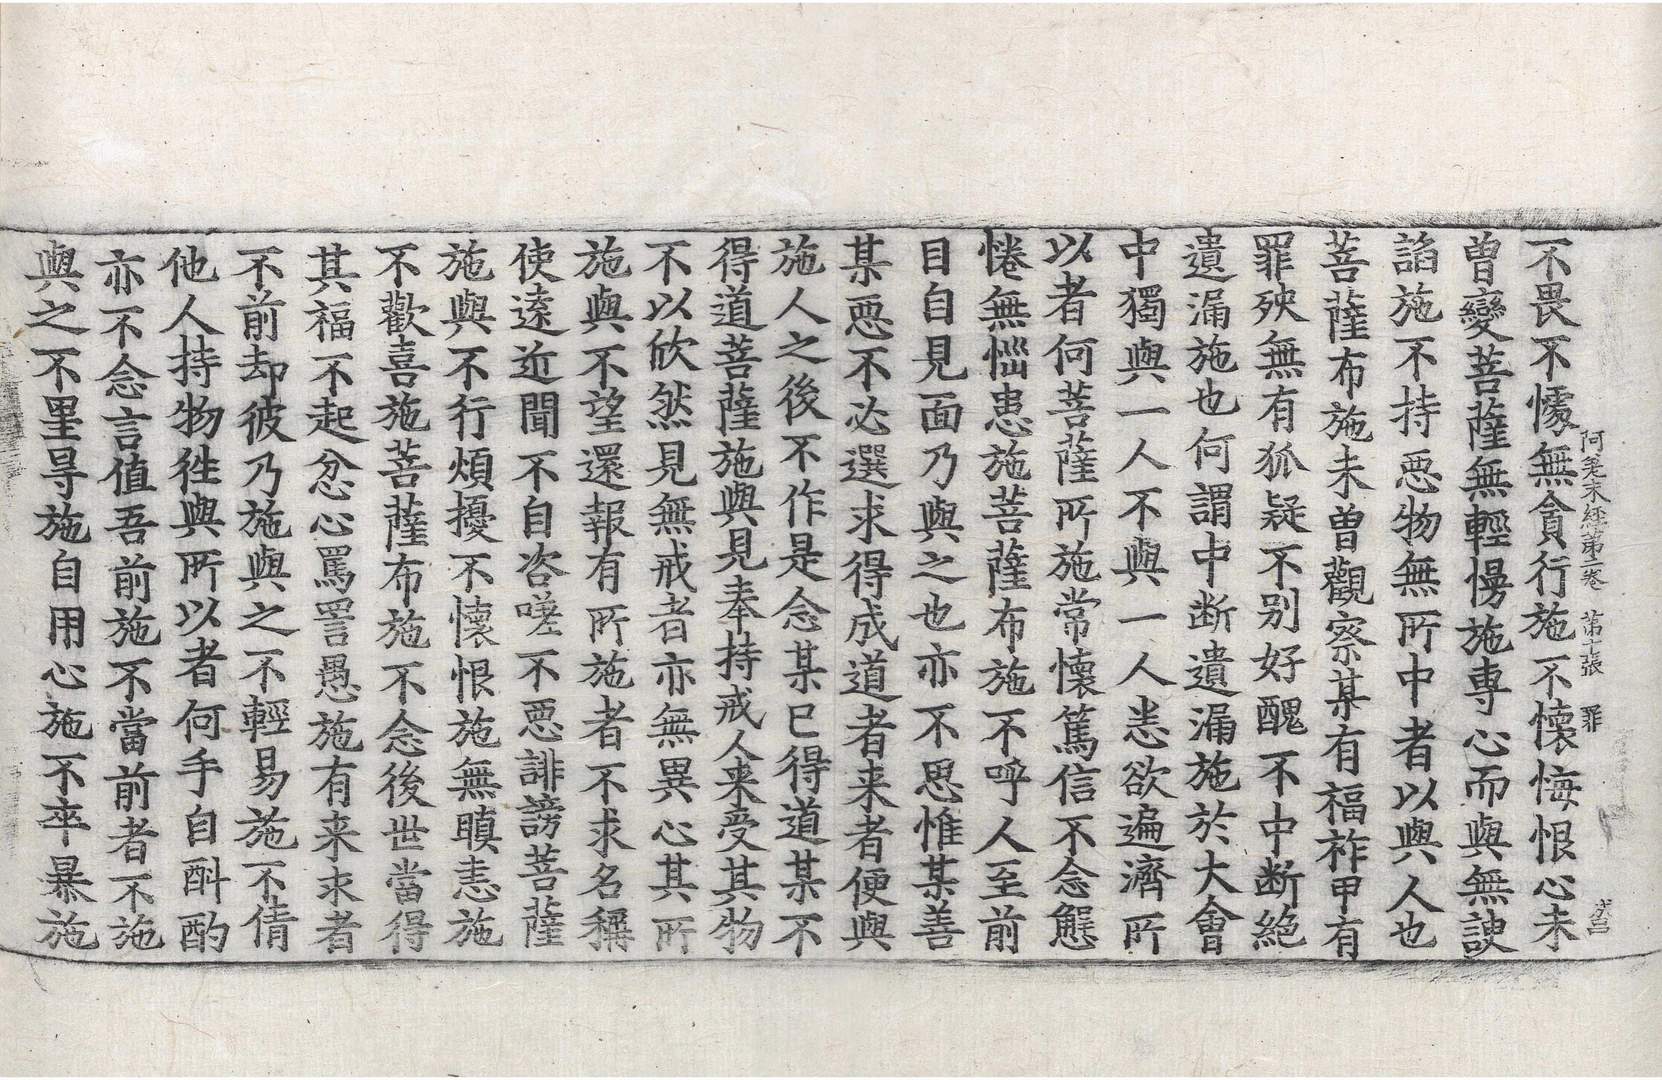 阿差末經第二卷　第十張　罪
不畏不懅無貪行施不懷悔恨心未
曽變菩薩無輕慢施專心而與無諛
諂施不持惡物無所中者以與人也
菩薩布施未曽觀察某有福祚甲有
罪殃無有狐疑不別好醜不中断絕
遺漏施也何謂中断遺漏施於大會
中獨與一人不與一人恚欲遍濟所
以者何菩薩所施常懷篤信不念懈
惓無惱患施菩薩布施不呼人至前
目自見面乃與之也亦不思惟某善
某惡不必選求得成道者来者便與
施人之後不作是念某已得道某不
得道菩薩施與見奉持戒人来受其物
不以欣然見無戒者亦無異心其所
施與不望還報有所施者不求名稱
使遠近聞不自咨嗟不惡誹謗菩薩
施與不行煩擾不懷恨施無瞋恚施
不歡喜施菩薩布施不念後世當得
其福不起忿心罵詈愚施有来求者
不前却彼乃施與之不輕易施不倩
他人持物徃與所以者何手自斟酌
亦不念言值吾前施不當前者不施
與之不里㝵施自用心施不卒暴施